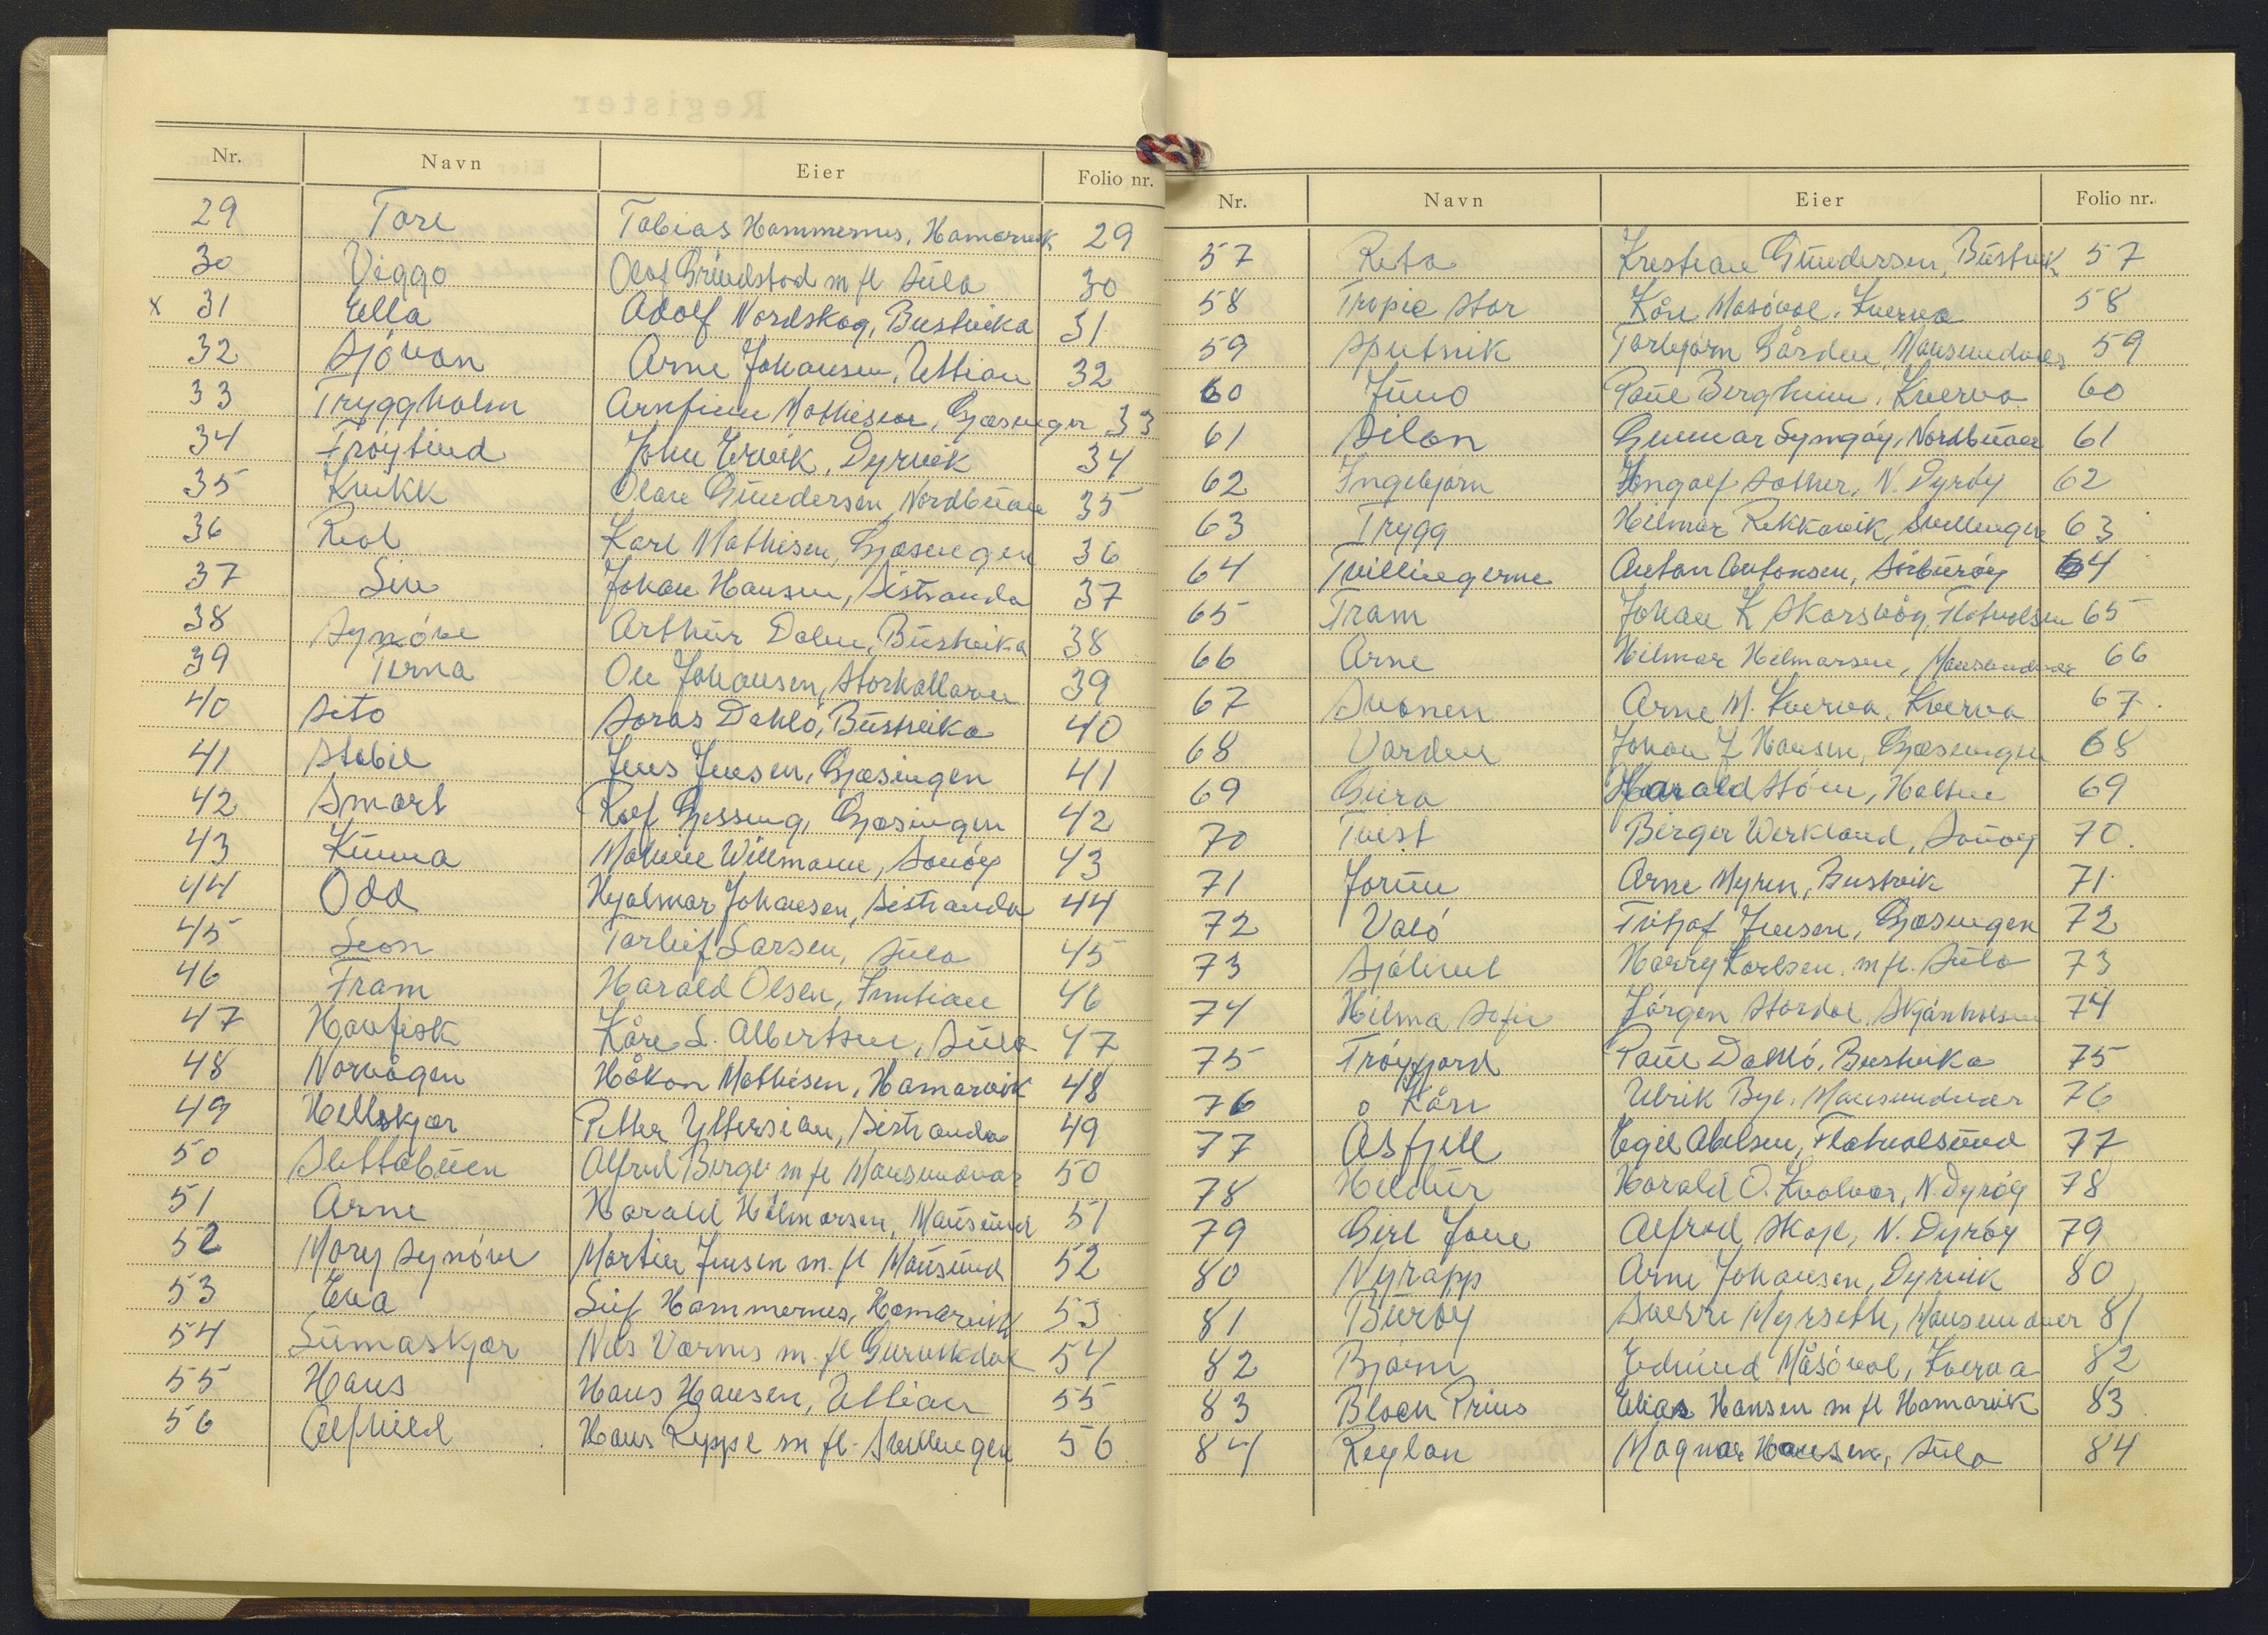 Nr. Navn Eier Folio nr.
29 Tore Tobias Hammernes, Hamarvik 29
30 Viggo Olaf Grindstad m fl Sula 30
x 31 Ella Adolf Nordskog, Bustvika 31
32 Sjóvon Arne Johansen, Uttian 32
33 Tryggholm Arnfinn Mathisen, Gjæsingen 33
34 Fróytind John Ervik, Dyrvik 34
35 Kvikk Olav Gundersen, Nordbuan 35
36 Real Karl Mathisen, Gjæsingen 36
37 Liv Johan Hansen, Sistranda 37
38 Synóve Arthur Dolen, Bustvika 38
39 Terna Ole Johansen, Storhallaren 39
40 Sito Soras Dahló, Bustvika 40
41 Stabil Jens Jensen, Gjæsingen 41
42 Smart Rolf Gjessing, Gjæsingen 42
43 Kinna Willmann, Sauóy 43
44 Odd Hjalmar Johansen, Sistranda 44
45 Leon Torleif Larsen, Sula 45
46 Fram Harald Olsen, Inntian 46
47 Havfisk Kåre L. Albertsen, Sula 47
48 Norvågen Håkon Mathisen, Hamarvik 48
49 Hellskjær Petter Yttersian, Sistranda 49
50 Slettabuen Alfred Berge m fl Mausundvær 50
51 Arne Harald Hilmarsen, Mausund 51
52 Mary Synóve Martin Jensen m. fl Mausund 52
53 Eva Leif Hammernes, Hamarvik 53
54 Sumaskjær Nils Værnes m. fl Gurvikdal 54
55 Hans Hans Hansen, Uttian 55
56 Alfhild Hans Reppe m fl. Svellingen 56
Nr. Navn Eier Folio nr.
57 Reta Kristian Gundersen, Bustvik 57
58 Tropic Star Kåre Masóval, Kverva 58
59 Sputnik Torbjørn Gården, Mausundvær 59
60 Juno Paul Bergheim, Kverva 60
61 Silon Gunnar Syrngóy, Nordbuan 61
62 Ingebjørn Ingolf Sother, N. Dyróy 62
63 Trygg Hilmar Rekkavik, Svellingen 63
64 Tvillingerne Anton Antonsen, Sórburóy 64
65 Fram Johan K Skarsvåg, Flatvalsen 65
66 Arne Hilmar Hilmarsen, Mausundvær 66
67 Svanen Arne M. Kverva, Kverva 67
68 Varden Johan J Hansen, Gjæsingen 68
69 Gura Harald Stóen, Holten 69
70 Tvist Birger Werkland, Sauóy 70
71 Jorunn Arne Myren, Bustvik 71
72 Való Fritjof Jensen, Gjæsingen 72
73 Sjólivet Harry Karlsen. m fl. Sula 73
74 Hilma Sofie Jórgen Stordal, Skjærholmen 74
75 Fróyfjord Paul Dahló, Bustvika 75
76 Kåre Ulrik Bye, Mausundvær 76
77 Åsfjell Egil Abelsen, Flatvalsund 77
78 Heldur Harald O. Kvalvær, N. Dyróy 78
79 Girl Jane Alfred Skage, N. Dyróy 79
80 Nyrapp Arne Johansen, Dyrvik 80
81 Buróy Sverre Myrseth, Mausundvær 81
82 Bjørn Edmund Måsóval, Kverva 82
83 Bloen Prins Elias Hansen m fl Hamarvik 83
84 Reylon Magnar Hansen, Sula 84